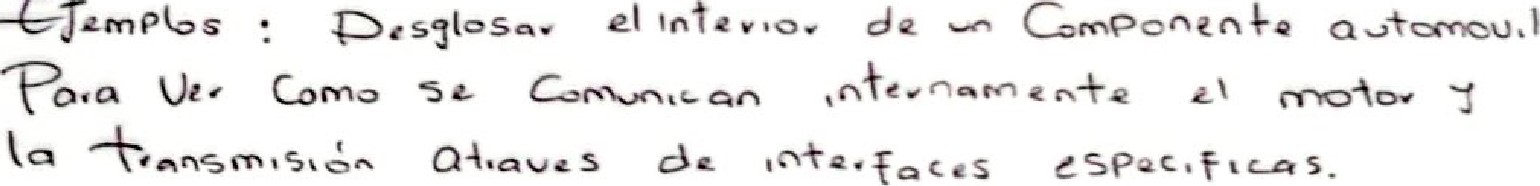 Ejemplos : Desglosar el interior de un Componente automovil
Para Ver Como se Comunican internamente el motor y
la transmisión atraves de interfaces especificas.